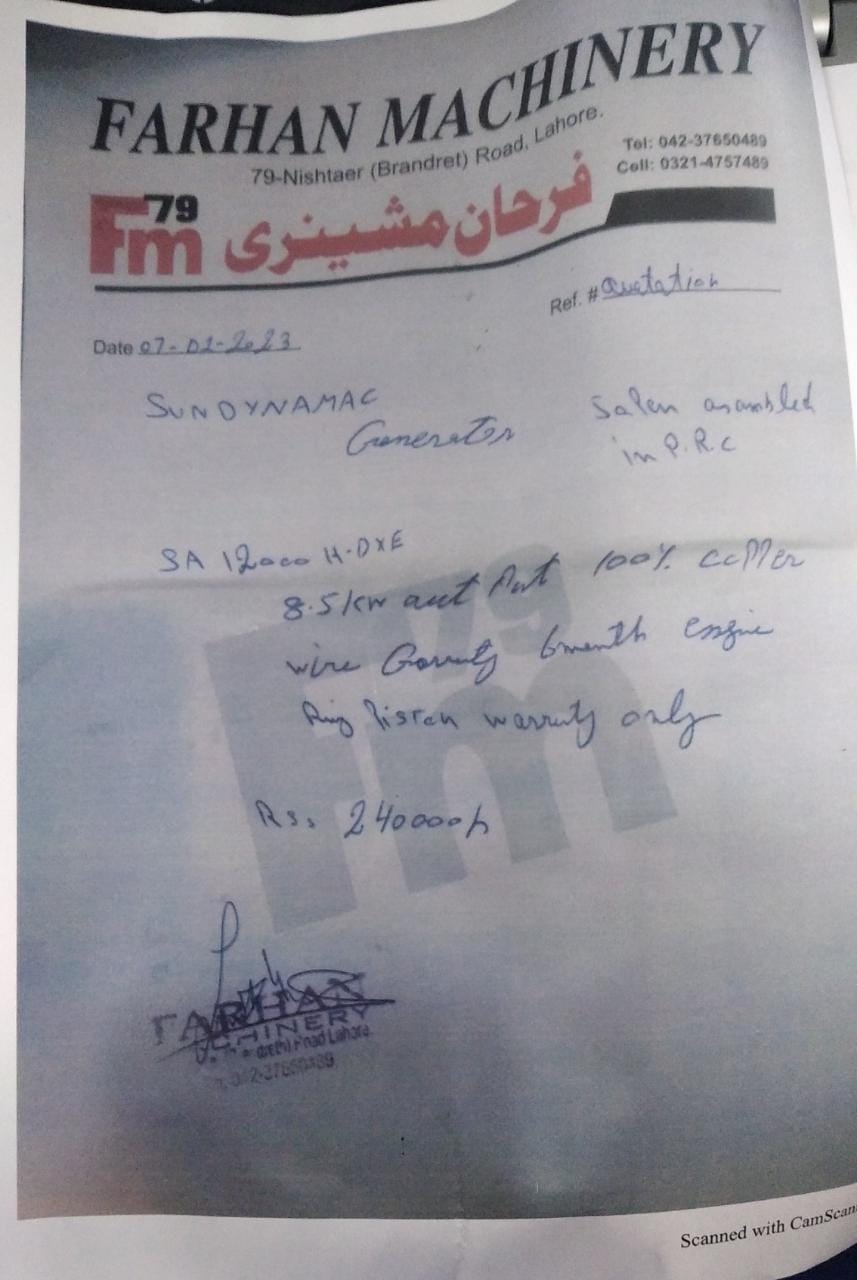 FARHAN MACHINERY
79-Nishtaer (Brandret) Road, Lahore.
Tel: 042-37650489
Cell: 0321-4757489
79
Fm
فرحان مشینری
Ref. # Quetation
Date 07-02-2023
SUNDYNAMAC
Generator
asambled
in P.R.C
SA 12000 H-DXE
8.5 KW Put 100% copper
wire 6 month engine
Ring Pisten warruty only
Rs. 240000/-
79
Fm
FARHAN
MACHINERY
Road Lahore
042-37650489
Scanned with CamScan